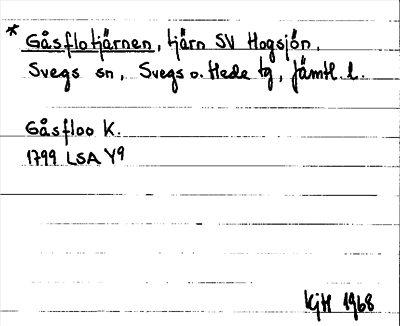 * Gåsflotjärnen, tjärn SV Hogsjön,
Svegs sn, Svegs o. Hede tg, Jämtl. l.
Gåsfloo K.
1799 LSA Y9
KjH 1968